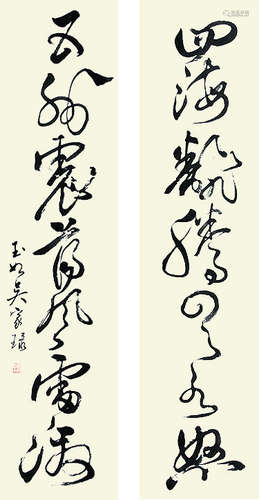 四海翻腾云水怒
五洲震荡风雷激
玉如吴家琭